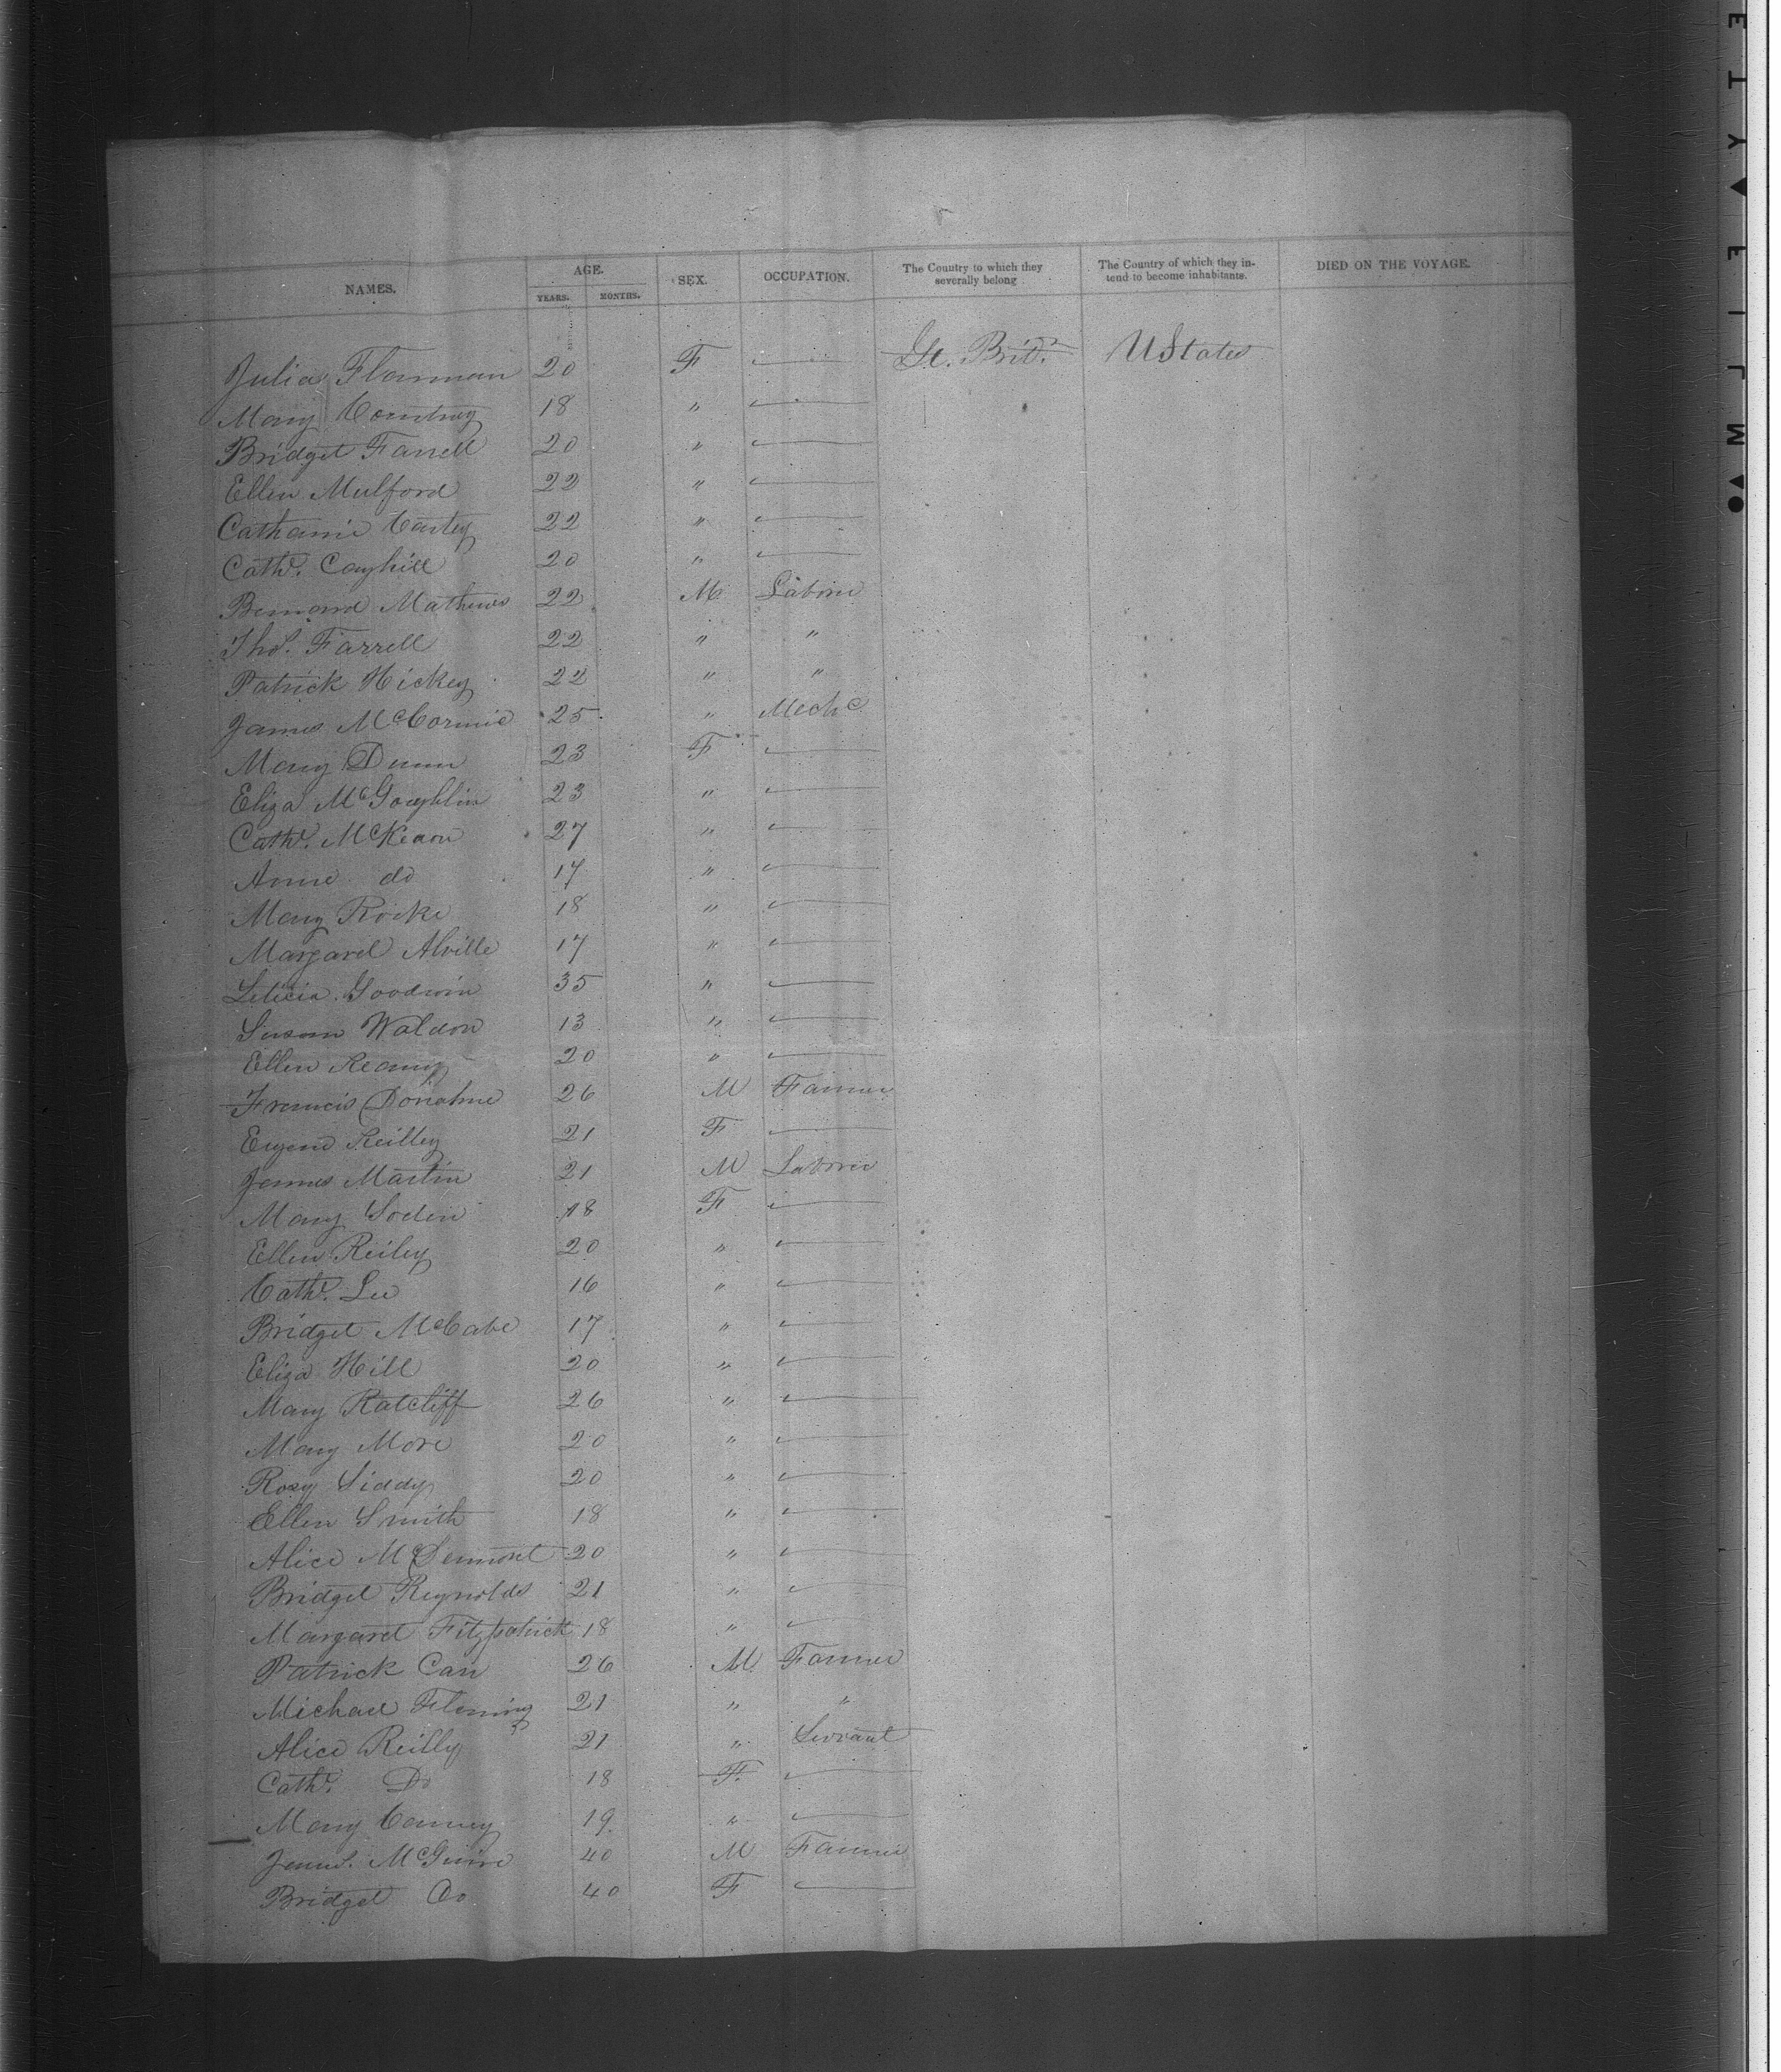 NAMES. AGE. SEX. OCCUPATION. The Country to which they severally belong The Country of which they intend to become inhabitants. DIED ON THE VOYAGE.
YEARS. MONTHS.
Julia Flannan 20 F — Gt. Brit. UStates
Mary Courtney 18 " —
Bridget Farrell 20 " —
Ellen Mulford 22 " —
Catharine Carley 22 " —
Cathe. Cayhill 20 "  —
Bernard Mathews 22 M Laborer
Thos. Farrell 22 " "
Patrick Hickey 22 " "
James McCormic 25 " Mechc
Mary Dunn 23 F —
Eliza McGoughlin 23 " —
Cathe. McKeaon 27 " —
Anne do 17 " —
Mary Rorke 18 " —
Margaret Alville 17 " —
Leticia Goodwin 35 " —
Susan Waldon 13 " —
Ellen Reamy 20 " —
Francis Donahue 26 M Farmer
Reilley 21 F —
James Martin 21 M Laborer
Mary Soden 18 F —
Ellen Reiley 20 " —
Cathe. Lee 16 " —
Bridget McCabe 17 " —
Eliza Hill 20 " —
Mary Ratcliff 26 " —
Mary More 20 " —
Rosy Liddy 20 " —
Ellen Smith 18 " —
Alice McDermott 20 " —
Bridget Reynolds 21 " —
Margaret Fitzpatrick 18 " —
Patrick Carr 26 M. Farmer
Michael Fleming 21 " "
Alice Reilly 21 " Servant
Cathe. Do 18 F. —
Mary Canney 19 " —
James. McGuire 40 M Farmer
Bridget Do 40 F —